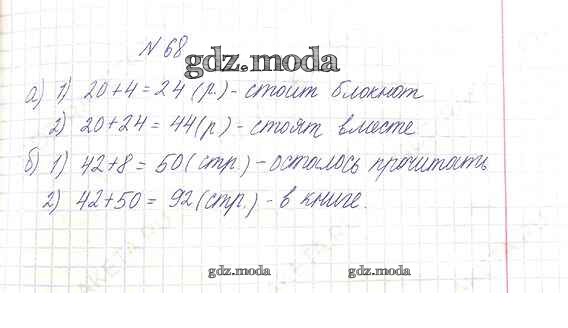 № 68
gdz.moda
а) 1) 20+4=24 (р.) - стоит блокнот
2) 20+24=44(р) - стоят вместе
б) 1) 42+8=50(стр.) - осталось прочитать
2) 42+50=92(стр.) - в книге.
gdz.moda gdz.moda